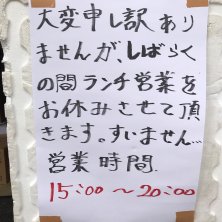 大変申し訳あり
ませんが、しばらく
の間ランチ営業を
お休みさせて頂
きます。すいません…
営業時間
15:00〜20:00